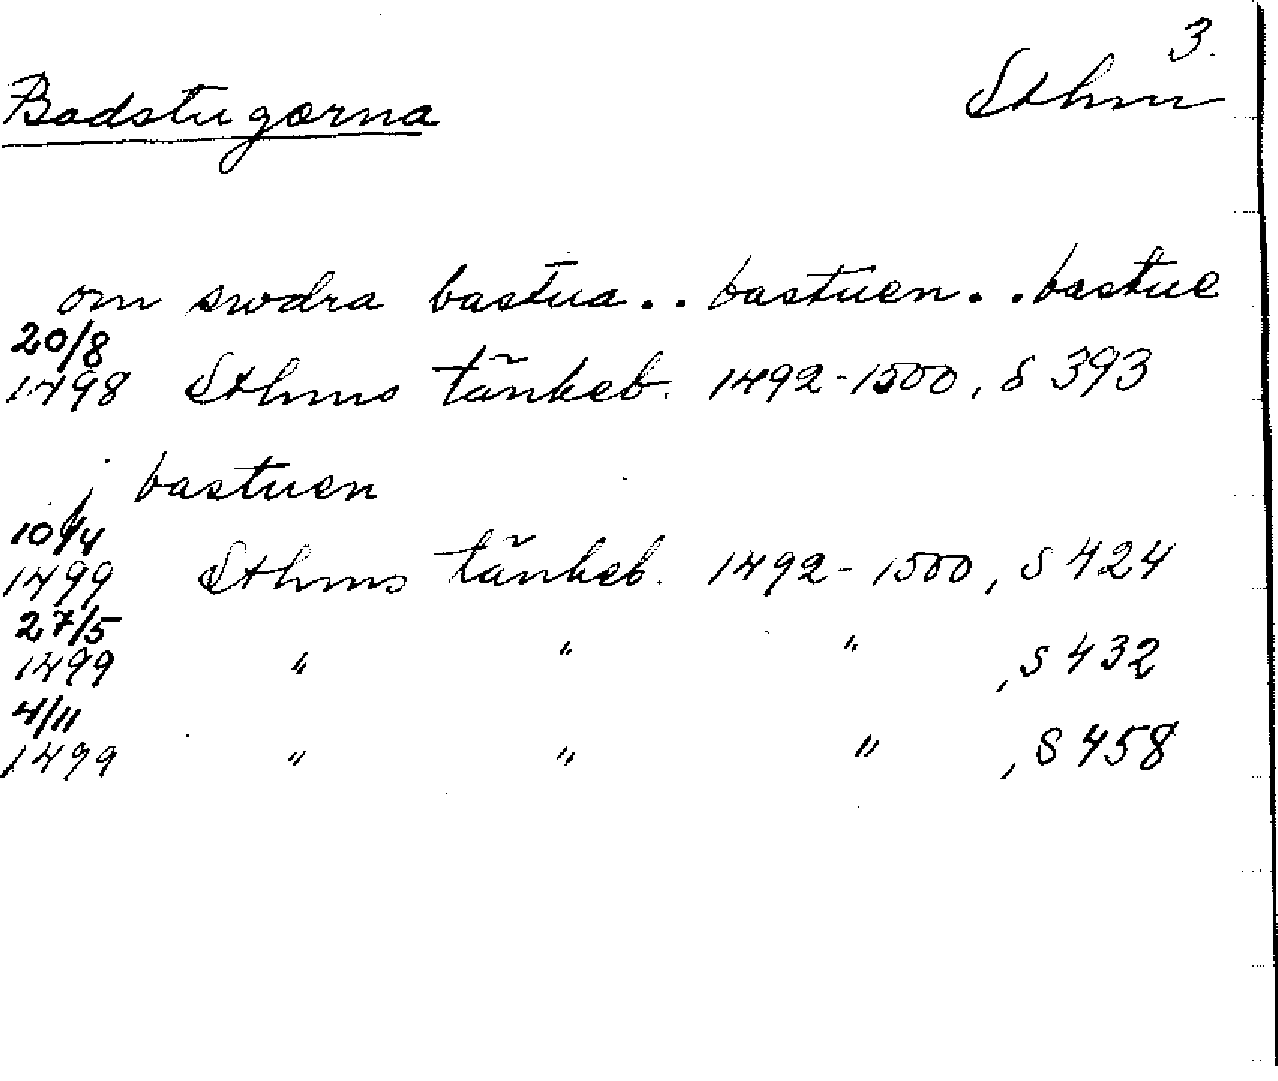 3.
Badstugorna Sthm
om swdra bastua.. bastuen.. bastue
20/8
1498 Sthms tänkeb. 1492-1500, s 393
j bastuen
10/4
1499 Sthms tänkeb. 1492-1500, s 424
27/5
1499 " " " , s 432
4/11
1499 " " " , s 458